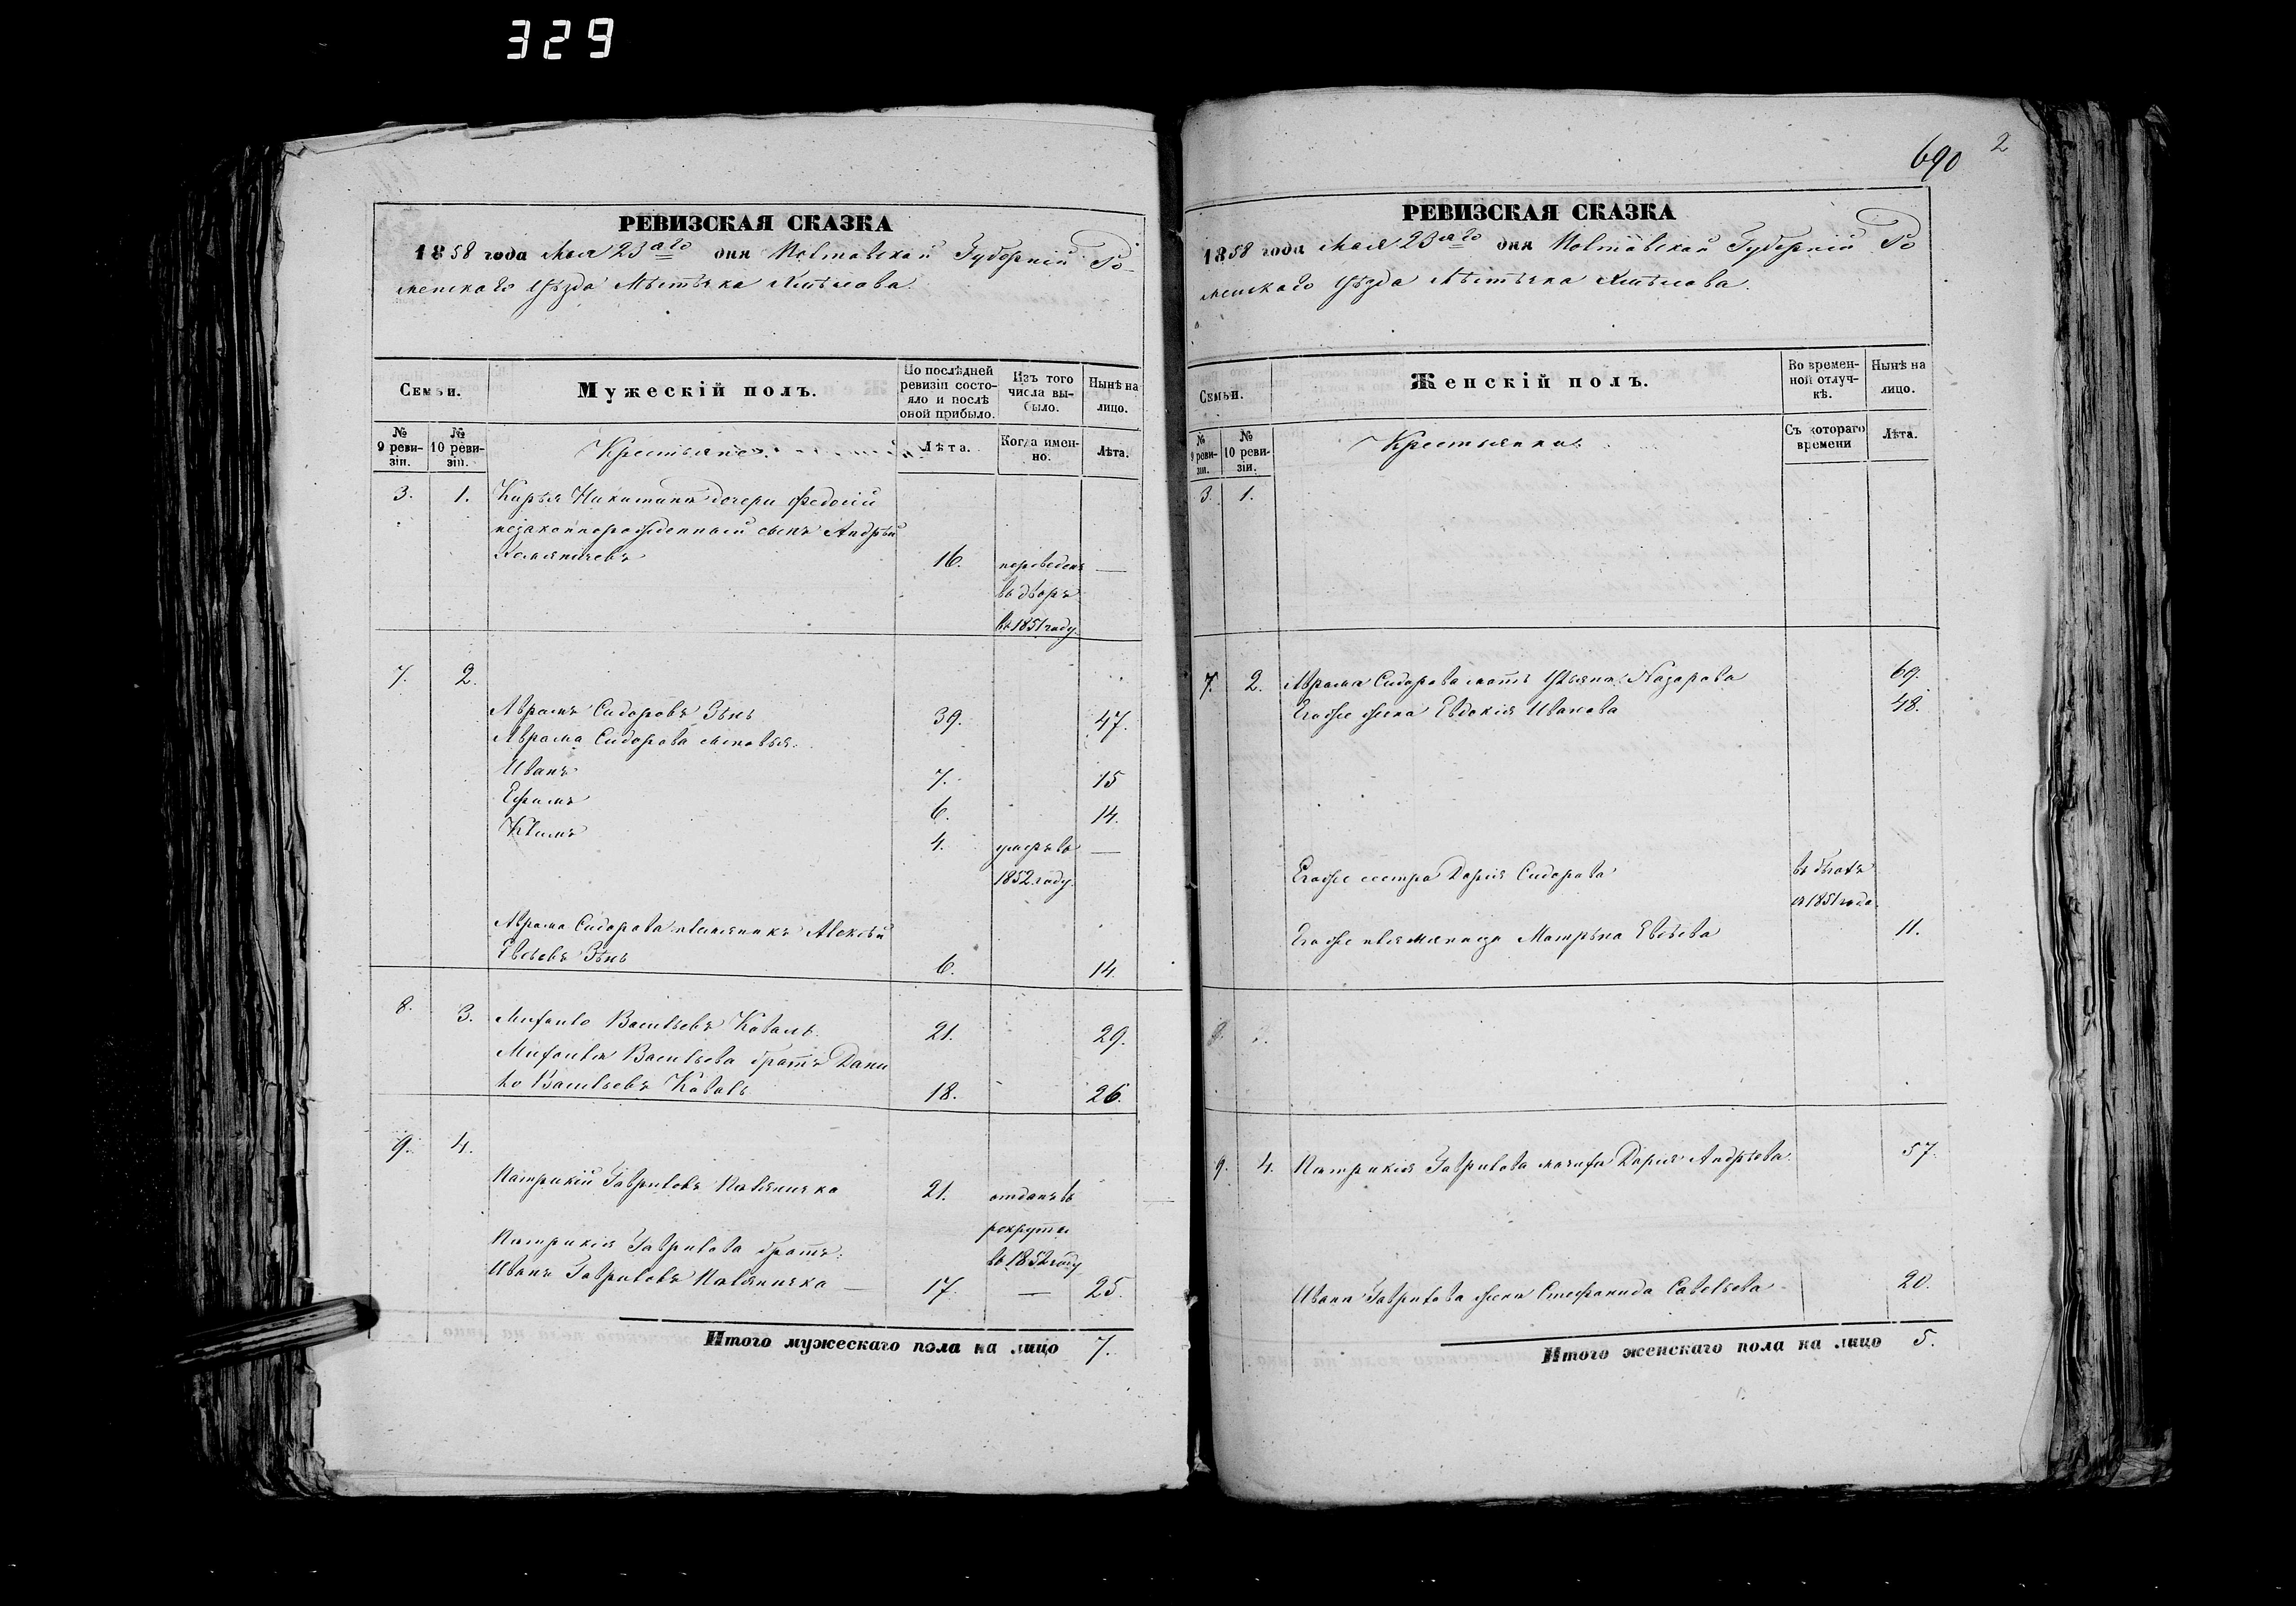 329
РЕВИЗСКАЯ СКАЗКА
1858 года Мая 23го дня Полтавской Губерніи Ро-
менскаго Уѣзда Мѣстечка Хмѣлова.
Семьи.
Мужескій полъ.
По послѣдней ревизіи состояло и послѣ оной прибыло.
Изъ того числа выбыло.
Нынѣ на лицо.
№ 9 ревизіи.
№ 10 ревизіи.
Крестьяне.
Лѣта.
Когда именно.
Лѣта.
3. 1. Никитина дочери Федосіи
незаконнорожденный сынъ Андрѣй
16. переведенъ —
въ дворъ
въ 1851 году.
7. 2.
Аврамъ Сидоровъ Зѣнь 39. 47.
Аврама Сидорова сыновья.
Иванъ 7. 15
Ефимъ 6. 14.
Климъ 4. умеръ въ —
1852 году.
Аврама Сидорова племяникъ Алексѣй
Евсѣевъ Зѣнь 6. 14.
8. 3. Михаило Васильевъ Коваль 21. 29.
Михаила Васильева братъ Дани
ло Васильевъ Коваль 18. 26.
9. 4.
Патрикій Гавриловъ 21. отданъ въ —
рекруты
Патрикія Гаврилова братъ. въ 1852 году
Иванъ Гавриловъ — 17. — 25.
Итого мужескаго пола на лицо 7.
690 2
РЕВИЗСКАЯ СКАЗКА
1858 года Мая 23го дня Полтавской Губерніи Ро
менскаго Уѣзда Мѣстечка Хмѣлова.
Семьи.
Женскій полъ.
Во временной отлучкѣ.
Нынѣ на лицо.
№ 9 ревизіи.
№ 10 ревизіи.
Крестьянки.
Съ котораго времени
Лѣта.
3. 1.
7. 2. Аврама Сидорова мать Ульяна Назарова 69.
Егоже жена Евдокія Иванова 48.
Егоже сестра Дарія Сидорова въ бѣгахъ
съ 1851 года.
Егоже племяница Матрѣна Евсѣева 11.
8. 3.
9. 4. Патрикія Гаврилова мачиха Дарія Андрѣева. 57.
Ивана Гаврилова жена Стефанида Савельева 20.
Итого женскаго пола на лицо 5.